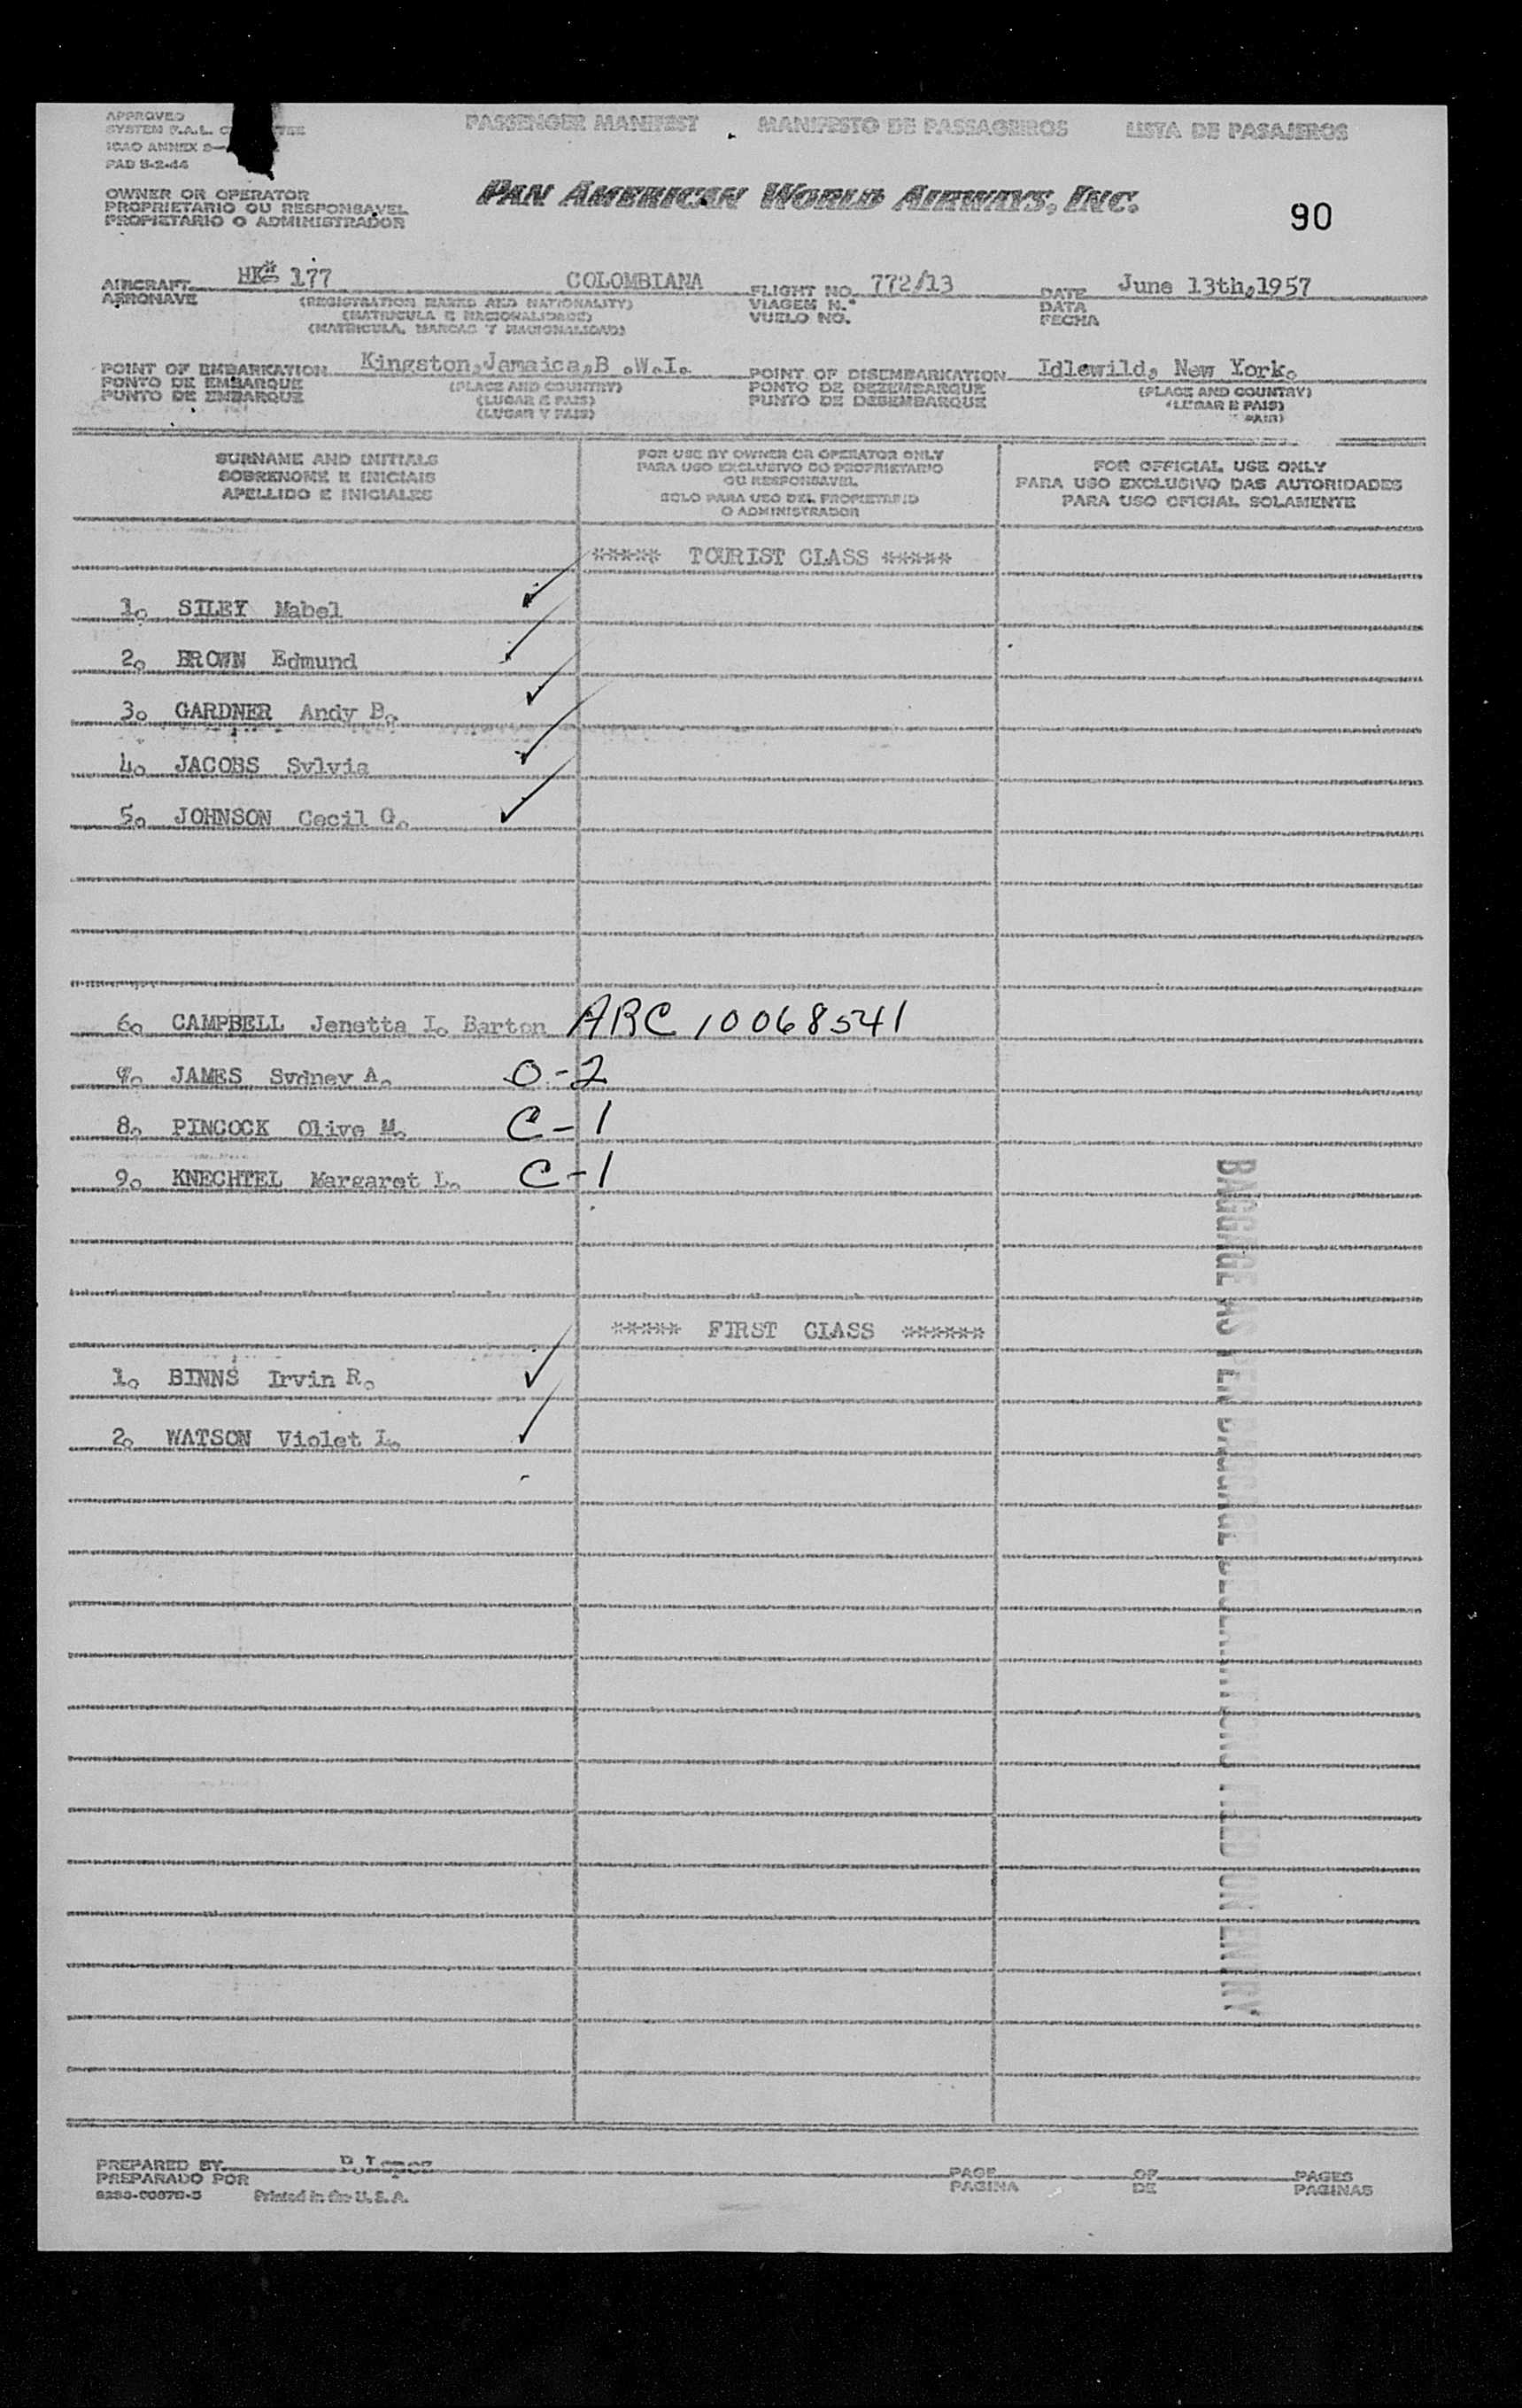 APPROVED
SYSTEM F.A.L.
ICAO ANNEX 9—
PAD 5-2-44
PASSENGER MANIFEST MANIFESTO DE PASSAGEIROS LISTA DE PASAJEROS
OWNER OR OPERATOR
PROPRIETARIO OU RESPONSAVEL
PROPIETARIO O ADMINISTRADOR
PAN AMERICAN WORLD AIRWAYS, INC.
90
AIRCRAFT HK* 177 COLOMBIANA FLIGHT NO. 772/13 DATE June 13th,1957
AERONAVE (REGISTRATION MARKS AND NATIONALITY) VIAGEM N.° DATA
(MATRICULA E NACIONALIDADE) VUELO NO. FECHA
(MATRICULA, MARCAS Y NACIONALIDAD)
POINT OF EMBARKATION Kingston,Jamaica,B .W.I. POINT OF DISEMBARKATION Idlewild, New York.
PONTO DE EMBARQUE (PLACE AND COUNTRY) PONTO DE DEZEMBARQUE (PLACE AND COUNTRY)
PUNTO DE EMBARQUE (LUGAR E PAIS) PUNTO DE DESEMBARQUE (LUGAR E PAIS)
(LUGAR Y PAIS) PAIS)
SURNAME AND INITIALS
SOBRENOME E INICIAIS
APELLIDO E INICIALES
FOR USE BY OWNER OR OPERATOR ONLY
PARA USO EXCLUSIVO DO PROPRIETARIO
OU RESPONSAVEL
SOLO PARA USO DEL PROPIETARIO
O ADMINISTRADOR
FOR OFFICIAL USE ONLY
PARA USO EXCLUSIVO DAS AUTORIDADES
PARA USO OFICIAL SOLAMENTE
***** TOURIST CLASS *****
1. SILEY Mabel
2. BROWN Edmund
3. GARDNER Andy B.
4. JACOBS Sylvia
5. JOHNSON Cecil G.
6. CAMPBELL Jenetta I. Barton ARC 10068541
7. JAMES Sydney A. O-2
8. PINCOCK Olive M. C-1
9. KNECHTEL Margaret L. C-1
***** FIRST CLASS ******
1. BINNS Irvin R.
2. WATSON Violet L.
BAGGAGE AS PER BAGGAGE DECLARATIONS FILED ON ENTRY
PREPARED BY R.Lopez PAGE OF PAGES
PREPARADO POR PAGINA DE PAGINAS
Printed in the U.S.A.